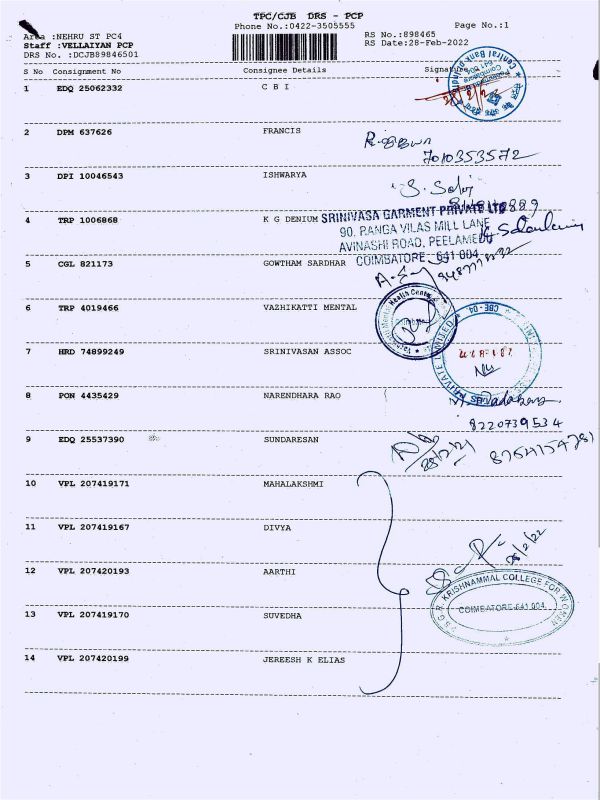 TPC/CJB DRS - PCP
Phone No.:0422-3505555
Page No.:1
Area :NEHRU ST PC4
RS No.:898465
Staff :VELLAIYAN PCP
RS Date:28-Feb-2022
DRS No. :DCJB89846501
S No Consignment No Consignee Details Signature
Central Bank of India
1 EDQ 25062332 C B I
2 DPM 637626 FRANCIS
7010353572
3 DPI 10046543 ISHWARYA
4 TRP 1006868 K G DENIUM
SRINIVASA GARMENT PRIVATE LTD
90, RANGA VILAS MILL LANE
AVINASHI ROAD, PEELAMEDU
COIMBATORE 641 004
5 CGL 821173 GOWTHAM SARDHAR
6 TRP 4019466 VAZHIKATTI MENTAL
Health Centre
CBE - 04
PRIVATE LIMITED
7 HRD 74899249 SRINIVASAN ASSOC
8 PON 4435429 NARENDHARA RAO
8220739534
9 EDQ 25537390 SUNDARESAN
8754154781
10 VPL 207419171 MAHALAKSHMI
11 VPL 207419167 DIVYA
12 VPL 207420193 AARTHI
KRISHNAMMAL COLLEGE FOR WOMEN
COIMBATORE-641 004
13 VPL 207419170 SUVEDHA
14 VPL 207420199 JEREESH K ELIAS